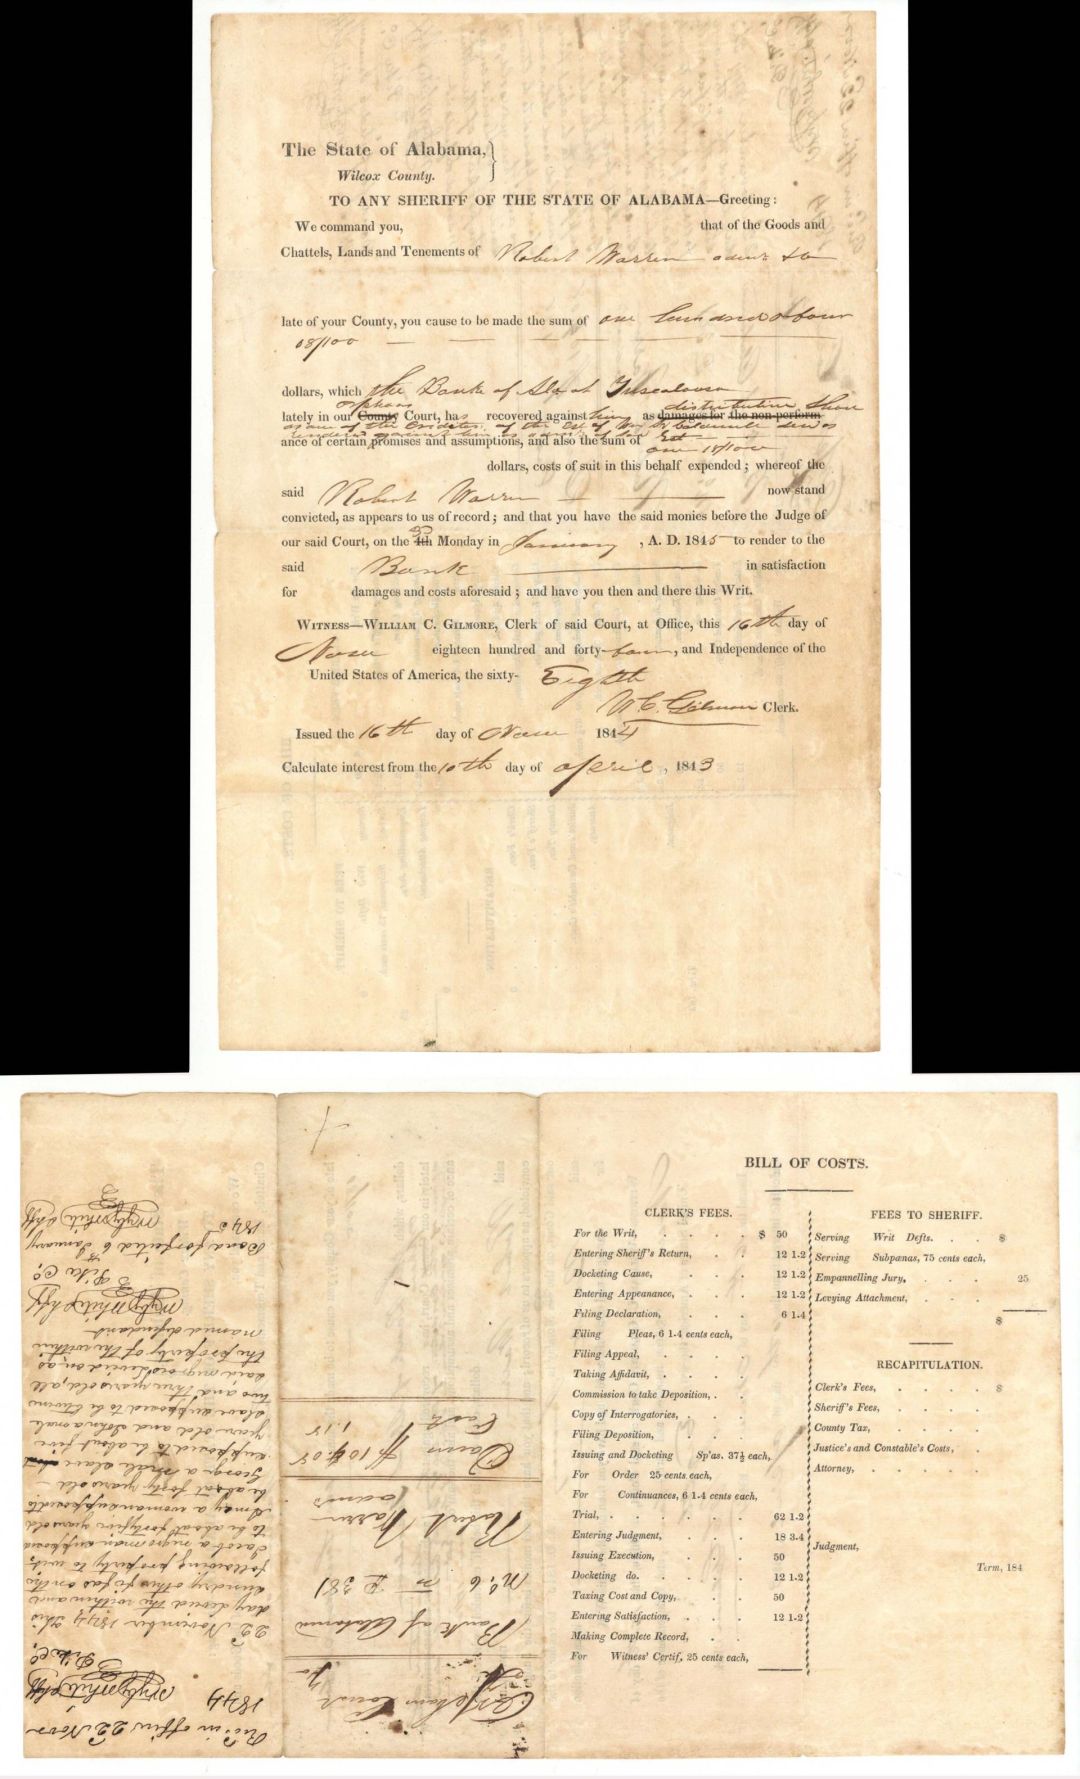 The State of Alabama,
Wilcox County.
TO ANY SHERIFF OF THE STATE OF ALABAMA—Greeting:
We command you, that of the Goods and
Chattels, Lands and Tenements of Robert Warren admr
late of your County, you cause to be made the sum of one hundred & four
08/100
dollars, which the Bank of Ala at Tuscaloosa
orphans distributive share
lately in our County Court, has recovered against him as damages for the non-perform-
as one of the creditors of the Est of
ance of certain promises and assumptions, and also the sum of Est
one 18/100
dollars, costs of suit in this behalf expended; whereof the
said Robert Warren now stand
convicted, as appears to us of record; and that you have the said monies before the Judge of
our said Court, on the 4th Monday in January, A. D. 1845 to render to the
said Bank in satisfaction
for damages and costs aforesaid; and have you then and there this Writ.
WITNESS—WILLIAM C. GILMORE, Clerk of said Court, at Office, this 16th day of
Novr eighteen hundred and forty-four, and Independence of the
United States of America, the sixty-Eighth
W. C. Gilmore Clerk.
Issued the 16th day of Novr 1844
Calculate interest from the 10th day of April, 1843
Rec. in office 22 Novr
1844
Myly White shff
Pike Co.
22 November 1844 this
day levied the within and
sundry other fi fas on the
following property to wit
Jacob a negro man supposed
to be about forty five years old
Amey a woman supposed to
be about forty years old
George a male slave
supposed to be about five
years old and John a male
slave supposed to be between
two and three years old, all
said negroes levied on, as
the property of the within
named defendant
Myly White Shff
Pike Co.
Bond forfeited 6 January
1845
Myly White shff
Orphans Court
fi fa
Bank of Alabama
No. 6 P 381
Robert Warren
admr
Dam $104.08
Cost 1.18
BILL OF COSTS.
CLERK'S FEES.
For the Writ, $ 50
Entering Sheriff's Return, 12 1-2
Docketing Cause, 12 1-2
Entering Appeanance, 12 1-2
Filing Declaration, 6 1.4
Filing Pleas, 6 1.4 cents each,
Filing Appeal,
Taking Affidavit,
Commission to take Deposition,
Copy of Interrogatories,
Filing Deposition,
Issuing and Docketing Sp'as. 37½ each,
For Order 25 cents each,
For Continuances, 6 1.4 cents each,
Trial, 62 1-2
Entering Judgment, 18 3.4
Issuing Execution, 50
Docketing do. 12 1-2
Taxing Cost and Copy, 50
Entering Satisfaction, 12 1-2
Making Complete Record,
For Witness' Certif, 25 cents each,
FEES TO SHERIFF.
Serving Writ Defts. $
Serving Subpanas, 75 cents each,
Empannelling Jury, 25
Levying Attachment,
$
RECAPITULATION.
Clerk's Fees, $
Sheriff's Fees,
County Tax,
Justice's and Constable's Costs,
Attorney,
Judgment,
Term, 184